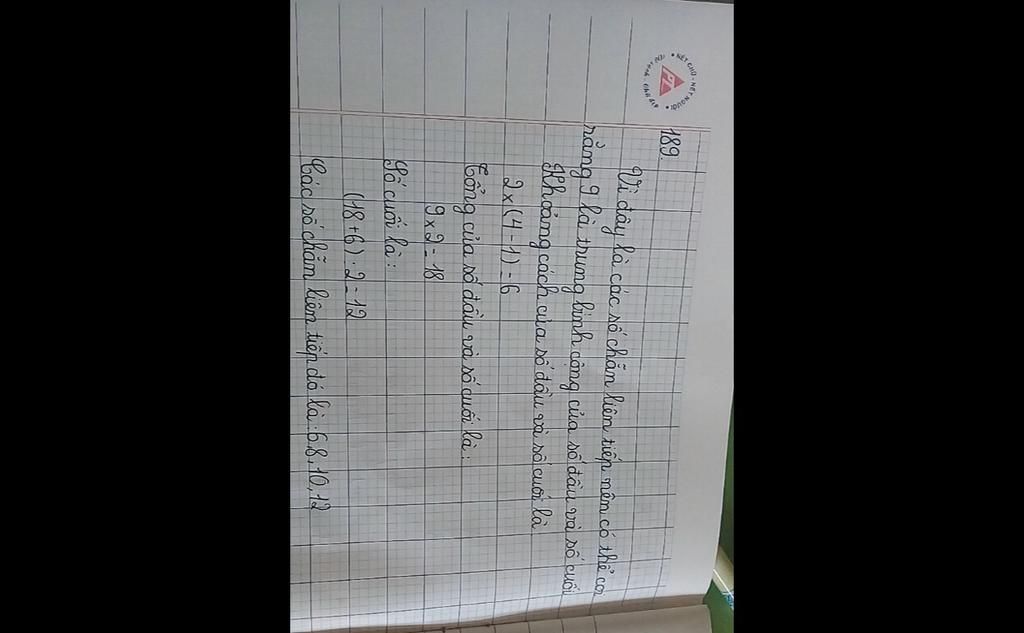 NÉT CHỮ - NẾT NGƯỜI
189.
Vì đây là các số chẵn liên tiếp nên có thể coi
rằng 9 là trung bình cộng của số đầu và số cuối
Khoảng cách của số đầu và số cuối là
2 x (4 - 1) = 6
Tổng của số đầu và số cuối là:
9 x 2 = 18
Số cuối là:
(18 + 6) : 2 = 12
Các số chẵn liên tiếp đó là: 6, 8, 10, 12